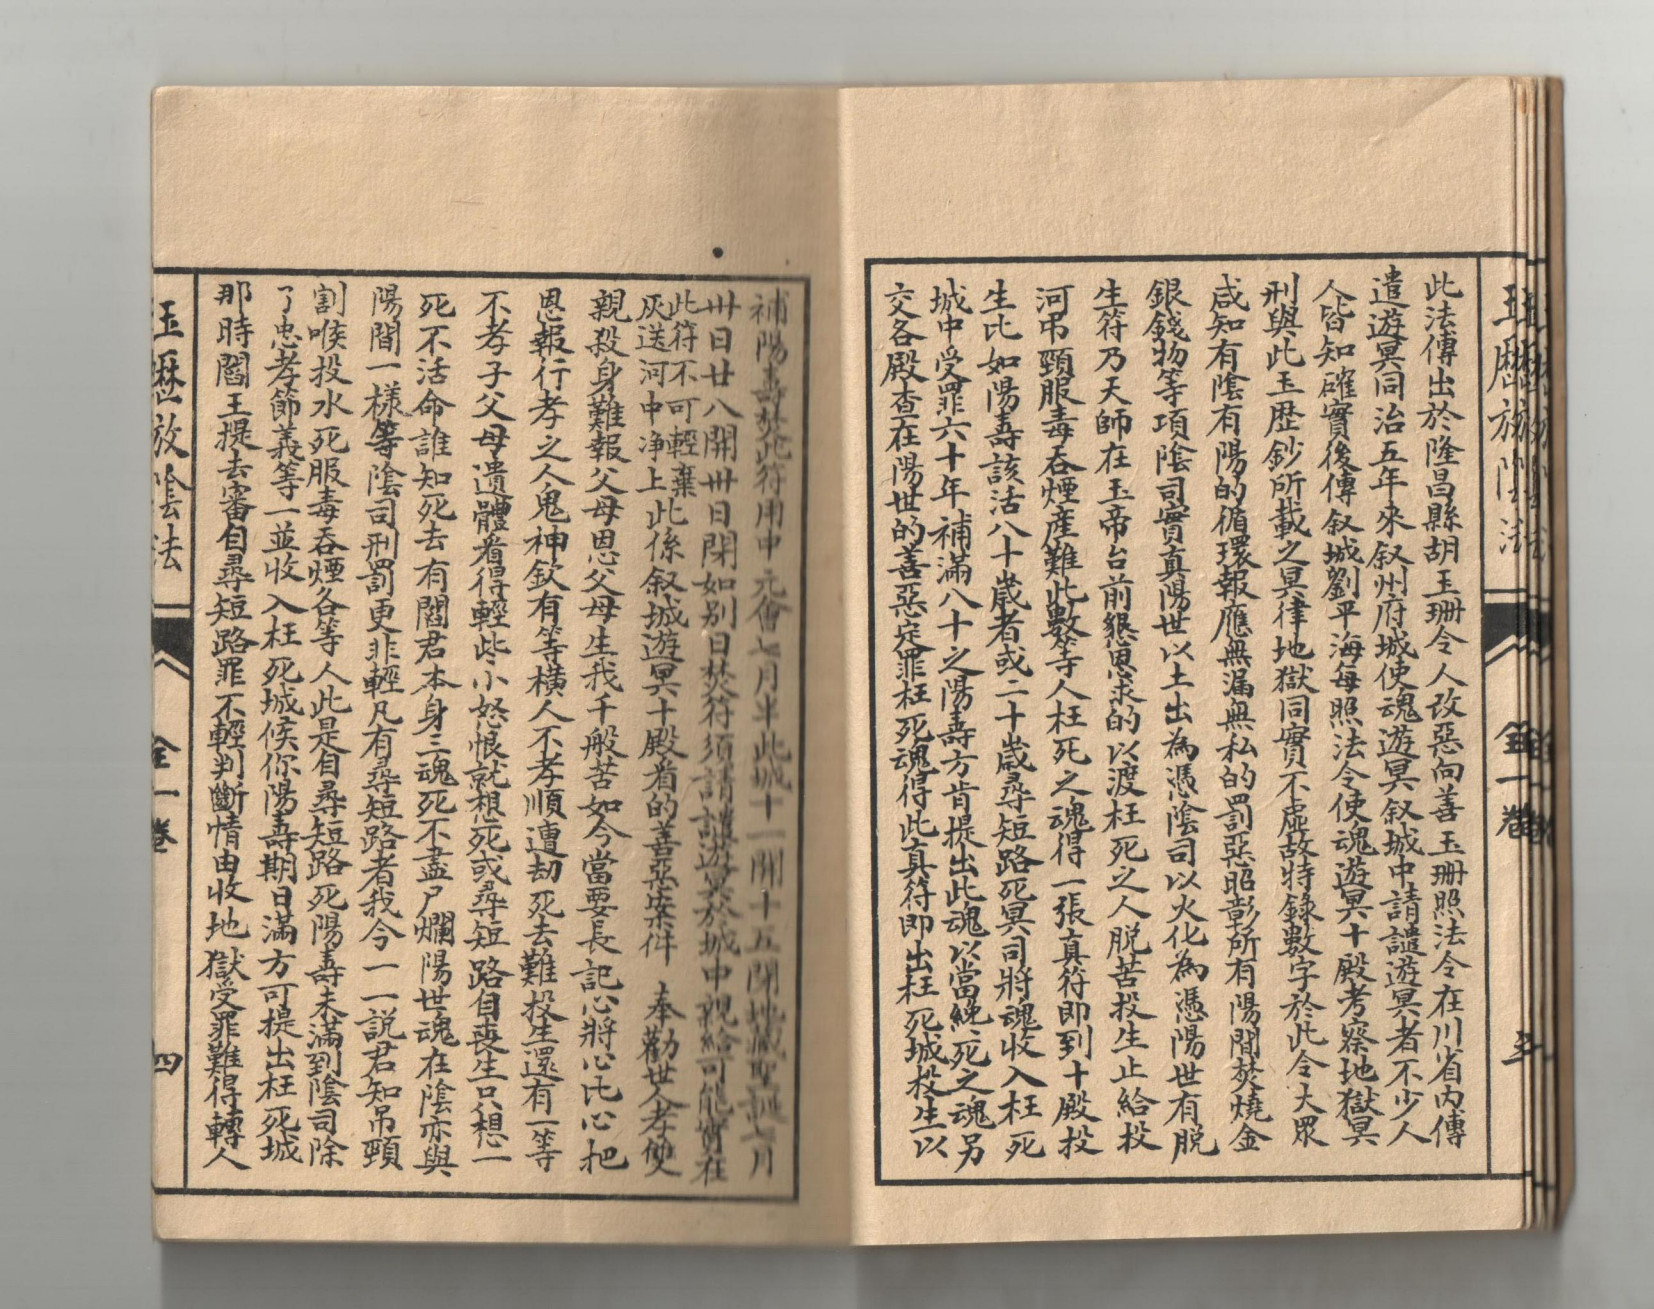 此法傳出於隆昌縣胡玉珊令人改惡向善玉珊照法令在川省內傳
遣遊冥同治五年來叙州府城使魂遊冥叙城中請譴遊冥者不少人
人皆知確實後傳叙城劉平海每照法令使魂遊冥十殿考察地獄冥
刑與此玉歷鈔所載之冥律地獄同實不虛故特錄數字於此令大眾
咸知有陰有陽的循環報應無漏無私的罰惡昭彰所有陽間焚燒金
銀錢物等項陰司實真陽世以土出為憑陰司以火化為憑陽世有脫
生符乃天師在玉帝台前懇恩求的以渡枉死之人脫苦投生止給投
河弔頸服毒吞煙產難此數等人枉死之魂得一張真符即到十殿投
生比如陽壽該活八十歲者或二十歲尋短路死冥司將魂收入枉死
城中受罪六十年補滿八十之陽壽方肯提出此魂以當絕死之魂另
交各殿查在陽世的善惡定罪枉死魂得此真符即出枉死城投生以
玉歷放陰法
全一卷
補陽壽焚此符用中元會七月半此城十一開十五閉地藏聖誕七月
卅日廿八開卅日閉如別日焚符須請譴遊冥於城中親給可能實在
此符不可輕棄
灰送河中净上此係叙城遊冥十殿看的善惡案件 奉勸世人孝雙
親殺身難報父母恩父母生我千般苦如今當要長記心將心比心把
恩報行孝之人鬼神欽有等橫人不孝順遭劫死去難投生還有一等
不孝子父母遺體看得輕些小怒恨就想死或尋短路自喪生只想一
死不活命誰知死去有閻君本身三魂死不盡尸爛陽世魂在陰亦與
陽間一樣等陰司刑罰更非輕凡有尋短路者我今一一說君知吊頸
割喉投水死服毒吞煙各等人此是自尋短路死陽壽未滿到陰司除
了忠孝節義等一並收入枉死城候你陽壽期日滿方可提出枉死城
那時閻王提去審自尋短路罪不輕判斷情由收地獄受罪難得轉人
玉歷放陰法
全一卷
四